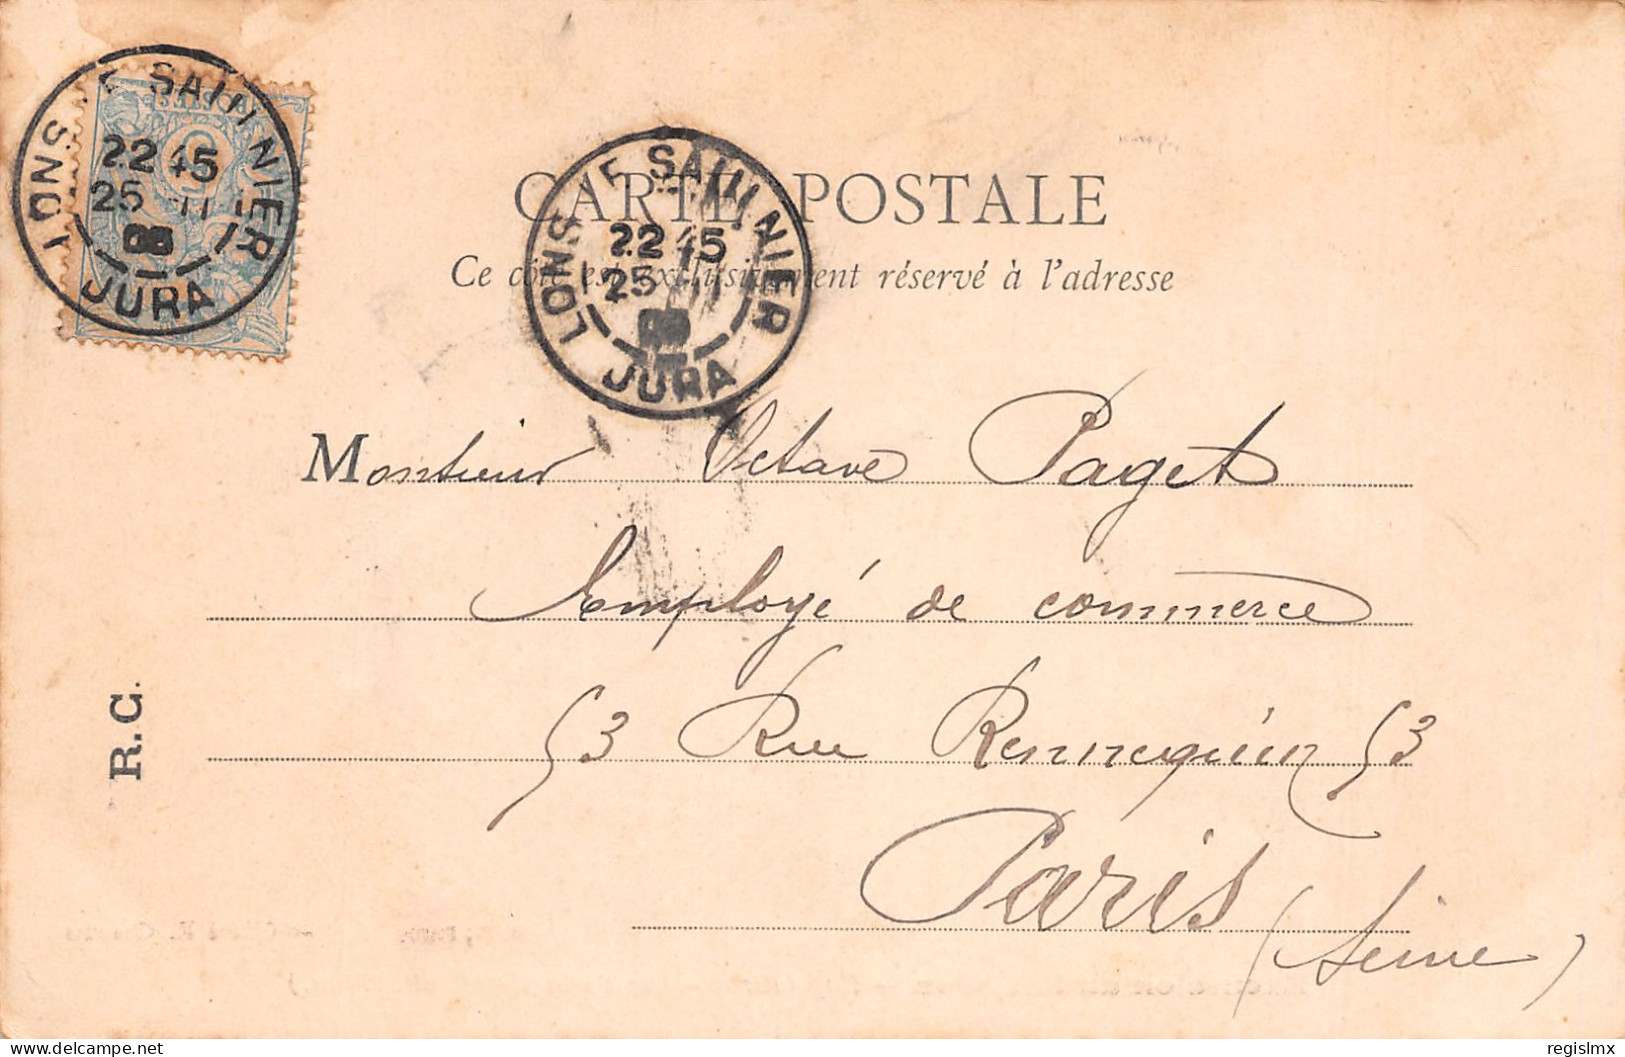 LONS LE SAUNIER
22 45
25
JURA
LONS LE SAUNIER
22 45
25
JURA
CARTE POSTALE
Ce côté est exclusivement réservé à l'adresse
Monsieur Octave Paget
Employé de commerce
53 Rue Rennequin 53
Paris
(Seine)
R. C.
regislmx